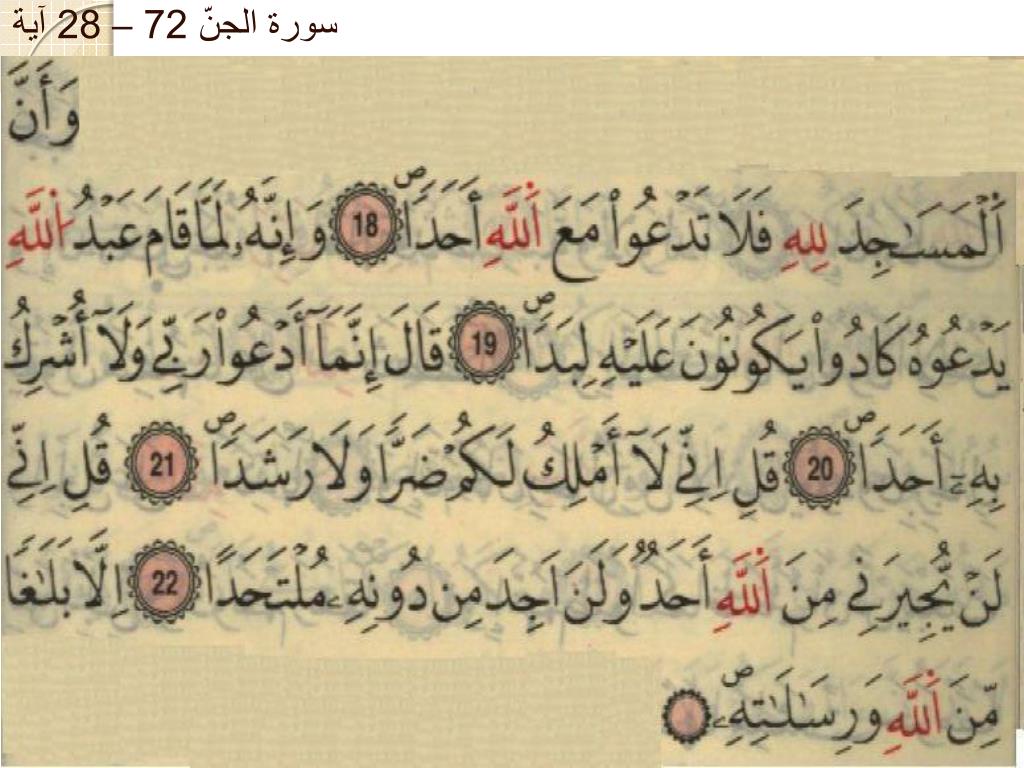 سورة الجنّ 72 – 28 آية
وَأَنَّ
اَ۬لْمَسَٰجِدَ لِلهِ فَلَا تَدْعُواْ مَعَ اَ۬للَّهِ أَحَدَاٗۖ 18 وَإِنَّهُۥ لَمَّا قَامَ عَبْدُ اُ۬للَّهِ
يَدْعُوهُ كَادُواْ يَكُونُونَ عَلَيْهِ لِبَدَاٗۖ 19 قَالَ إِنَّمَآ أَدْعُواْ رَبِّے وَلَآ أُشْرِكُ
بِهِۦٓ أَحَدَاٗۖ 20 قُلِ اِنِّے لَآ أَمْلِكُ لَكُمْ ضَرّاٗ وَلَا رَشَدَاٗۖ 21 قُلِ اِنِّے
لَنْ يُّجِيرَنِے مِنَ اَ۬للَّهِ أَحَدٞ وَلَنَ اَجِدَ مِن دُونِهِۦ مُلْتَحَدًا 22 اِلَّا بَلَٰغاٗ
مِّنَ اَ۬للَّهِ وَرِسَٰلَٰتِهِۦۖ